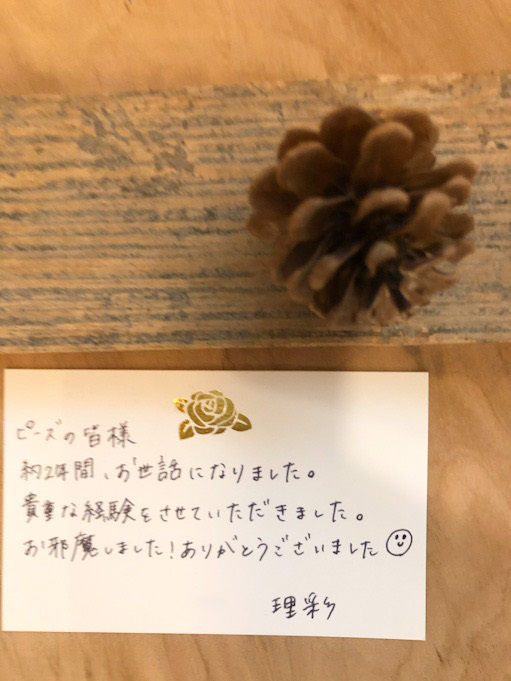 ピーズの皆様
約2年間、お世話になりました。
貴重な経験をさせていただきました。
お邪魔しました!ありがとうございました
理彩